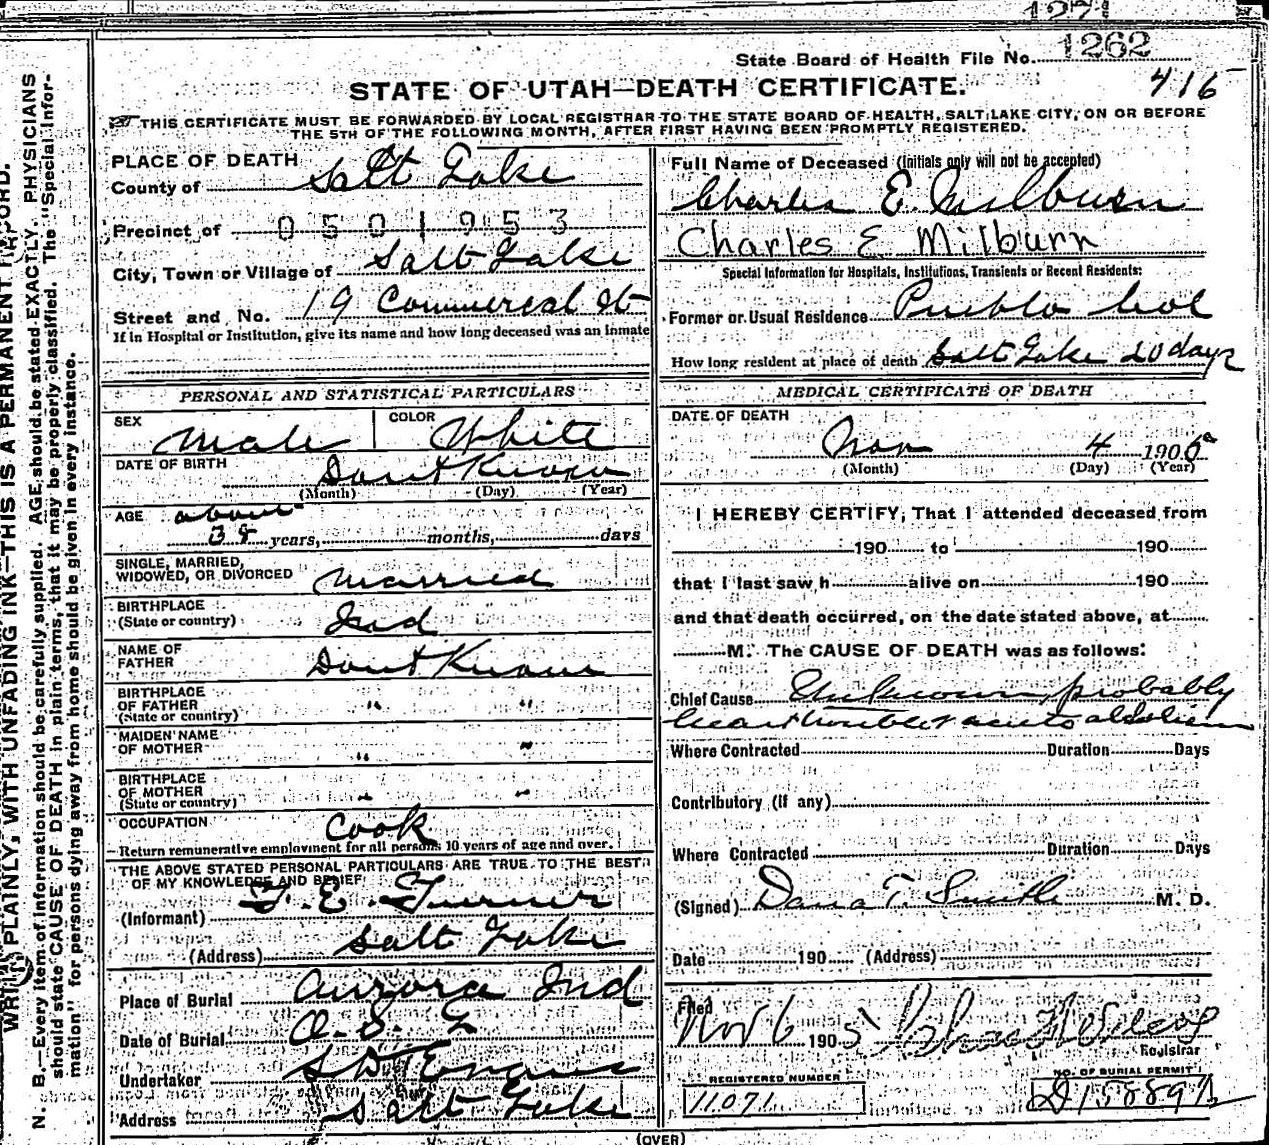 1271
State Board of Health File No. 1262
STATE OF UTAH—DEATH CERTIFICATE.
416
THIS CERTIFICATE MUST BE FORWARDED BY LOCAL REGISTRAR TO THE STATE BOARD OF HEALTH, SALT LAKE CITY, ON OR BEFORE
THE 5TH OF THE FOLLOWING MONTH, AFTER FIRST HAVING BEEN PROMPTLY REGISTERED.
WRITE PLAINLY, WITH UNFADING INK—THIS IS A PERMANENT RECORD.
N. B.—Every item of information should be carefully supplied. AGE should be stated EXACTLY. PHYSICIANS
should state CAUSE OF DEATH in plain terms, that it may be properly classified. The "Special Infor-
mation" for persons dying away from home should be given in every instance.
PLACE OF DEATH
County of Salt Lake
Precinct of 0501953
City, Town or Village of Salt Lake
Street and No. 19 Commercal St
If in Hospital or Institution, give its name and how long deceased was an inmate
PERSONAL AND STATISTICAL PARTICULARS
SEX Male COLOR White
DATE OF BIRTH Dont Know
(Month) (Day) (Year)
AGE about
38 years, months, days
SINGLE, MARRIED,
WIDOWED, OR DIVORCED Married
BIRTHPLACE
(State or country) Ind
NAME OF
FATHER Dont Know
BIRTHPLACE
OF FATHER " "
(State or country)
MAIDEN NAME
OF MOTHER " "
BIRTHPLACE
OF MOTHER " "
(State or country)
OCCUPATION Cook
Return remunerative employment for all persons 10 years of age and over.
THE ABOVE STATED PERSONAL PARTICULARS ARE TRUE TO THE BEST
OF MY KNOWLEDGE AND BELIEF
(Informant) F. E. Turner
(Address) Salt Lake
Place of Burial Aurora Ind
Date of Burial O. S. L
Undertaker S D Evans
Address Salt Lake
Full Name of Deceased (Initials only will not be accepted)
Charles E. Milburn
Charles E Milburn
Special Information for Hospitals, Institutions, Transients or Recent Residents:
Former or Usual Residence Pueblo Col
How long resident at place of death Salt Lake 20 days
MEDICAL CERTIFICATE OF DEATH
DATE OF DEATH
Nov 4 1905
(Month) (Day) (Year)
I HEREBY CERTIFY, That I attended deceased from
190 to 190
that I last saw h alive on 190
and that death occurred, on the date stated above, at
M. The CAUSE OF DEATH was as follows:
Chief Cause Unknown, probably
heart trouble & acute alcholism
Where Contracted Duration Days
Contributory (if any)
Where Contracted Duration Days
(Signed) Dana T. Smith M. D.
Date 190 (Address)
Filed
Nov 6 1905
Registrar
REGISTERED NUMBER
11071
NO. OF BURIAL PERMIT
(OVER)